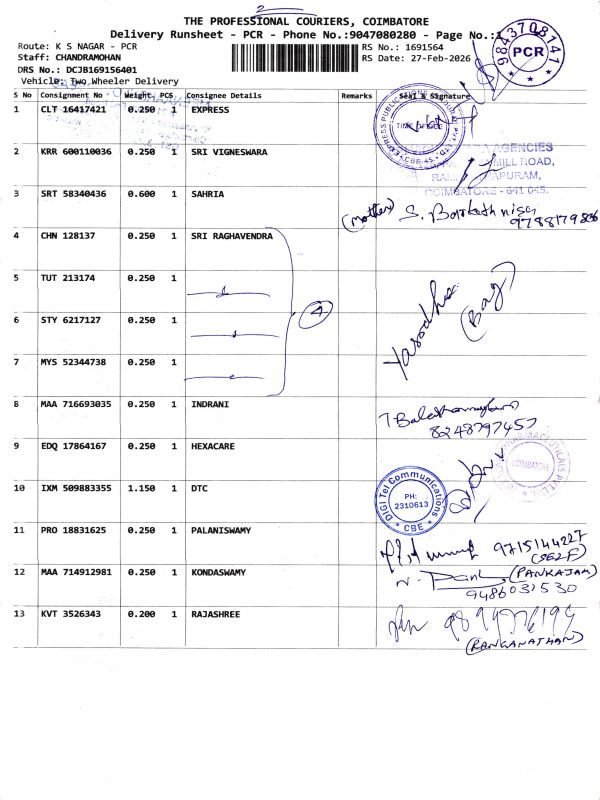 2
THE PROFESSIONAL COURIERS, COIMBATORE
Delivery Runsheet - PCR - Phone No.:9047080280 - Page No.:1
Route: K S NAGAR - PCR
RS No.: 1691564
Staff: CHANDRAMOHAN
RS Date: 27-Feb-2026
DRS No.: DCJB169156401
Vehicle: Two Wheeler Delivery
9843708141
PCR
S No Consignment No Weight PCS Consignee Details Remarks Seal & Signature
1 CLT 16417421 0.250 1 EXPRESS
TIME OFFICE
2 KRR 600110036 0.250 1 SRI VIGNESWARA
AGENCIES
MILL ROAD,
COIMBATORE - 641 045.
3 SRT 58340436 0.600 1 SAHRIA
(mother) S.
4 CHN 128137 0.250 1 SRI RAGHAVENDRA
5 TUT 213174 0.250 1
6 STY 6217127 0.250 1
4
7 MYS 52344738 0.250 1
Yasodha
(Bag)
8 MAA 716693035 0.250 1 INDRANI
8248797457
9 EDQ 17864167 0.250 1 HEXACARE
COIMBATORE
10 IXM 509883355 1.150 1 DTC
DIGI Tel Communications
PH:
2310613
CBE
11 PRO 18831625 0.250 1 PALANISWAMY
9715144227
(SELF)
12 MAA 714912981 0.250 1 KONDASWAMY
(PANKAJAM)
9486031530
13 KVT 3526343 0.200 1 RAJASHREE
(RANGANATHAN)